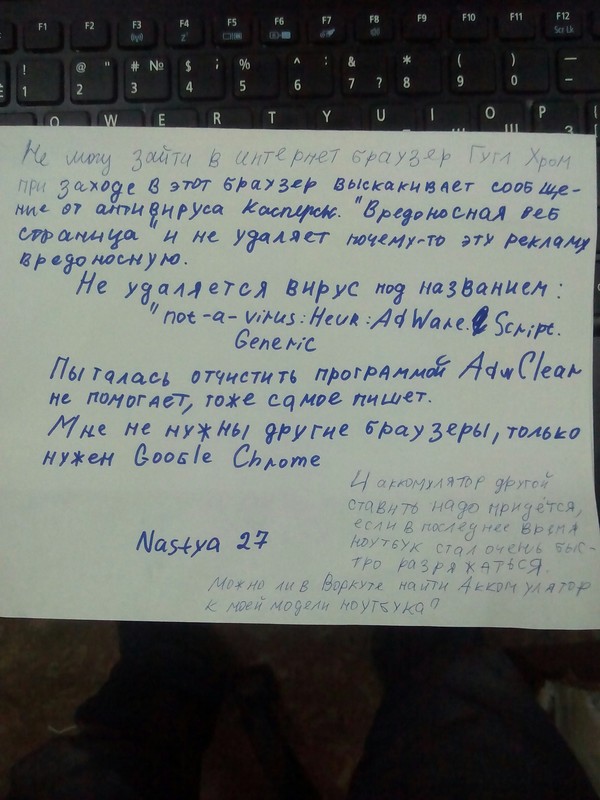 F1 F2 F3 F4 F5 F6 F7 F8 F9 F10 F11 F12
Scr Lk
! 1 @ " 2 # № 3 $ ; 4 % 5 ^ : 6 & 7 ? * 8 ( 9 ) 0 —
W E R T Y U I O P
Не могу зайти в интернет браузер Гугл Хром
при заходе в этот браузер выскакивает сообще-
ние от антивируса Касперск. "Вредоносная веб
страница" и не удаляет почему-то эту рекламу
вредоносную.
Не удаляется вирус под названием:
"not-a-virus:Heur:AdWare.Script.
Generic
Пыталась отчистить программой AdwClean
не помогает, тоже самое пишет.
Мне не нужны другие браузеры, только
нужен Google Chrome
И аккомулятор другой
ставить надо придётся,
если в последнее время
ноутбук стал очень быс-
тро разряжаться.
Nastya 27
Можно ли в Воркуте найти Аккомулятор
к моей модели ноутбука?